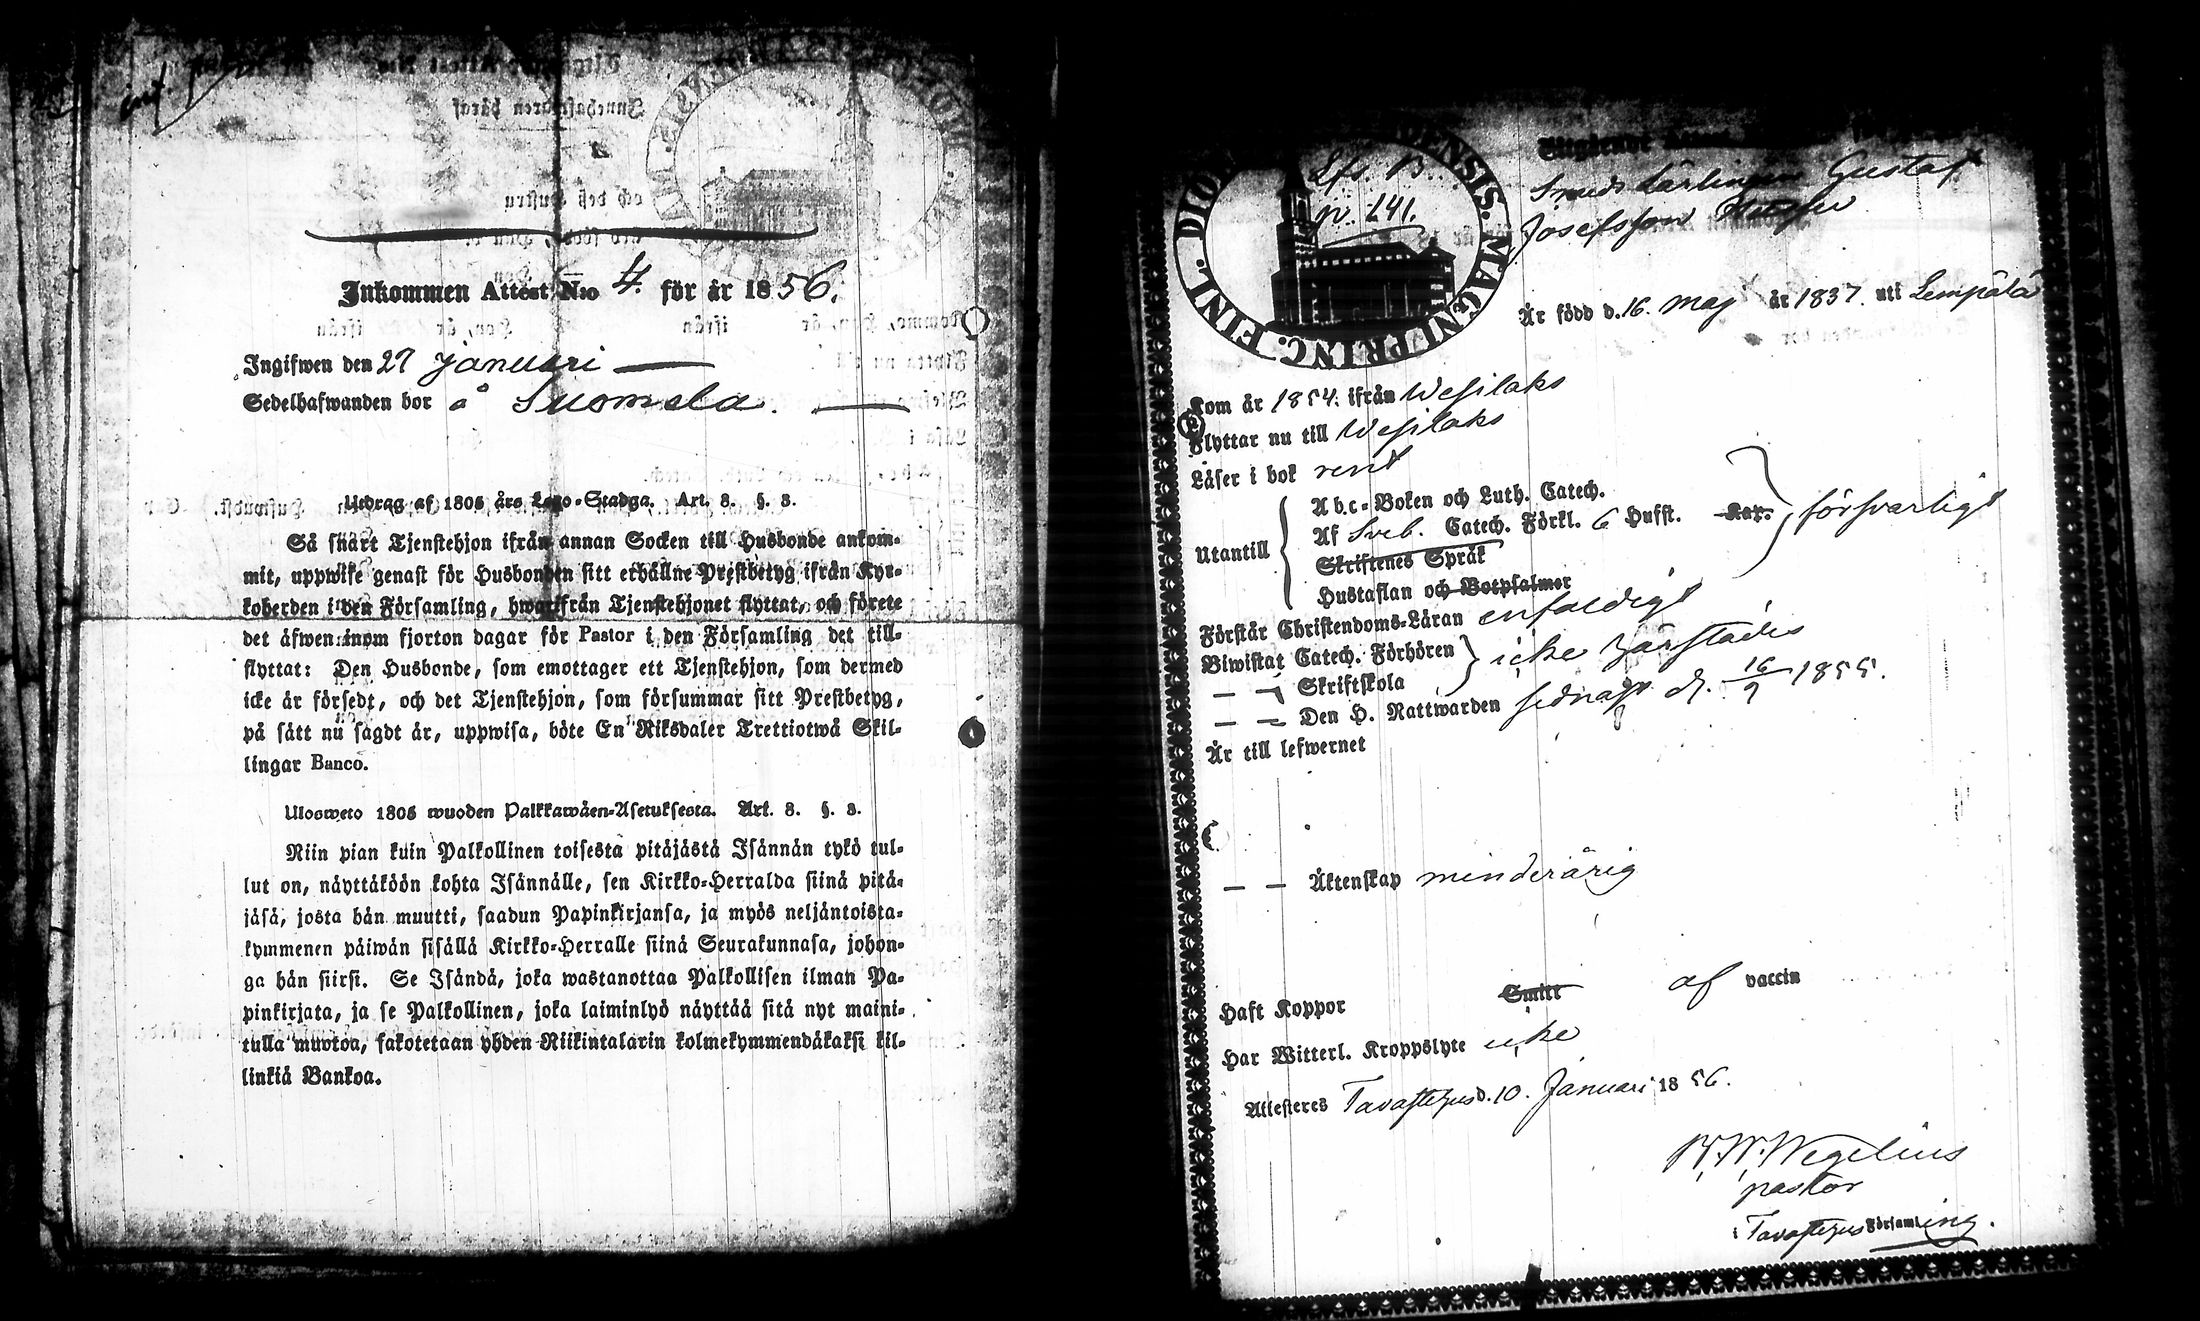 Inkommen Attest N:o 4. för år 1856.
Ingifwen den 27 januari
Sedelhafwanden bor å Suomela.
Utdrag af 1805 års Lego-Stadga. Art. 8. §. 3.
Så snart Tjenstehjon ifrån annan Socken till Husbonde ankom-
mit, uppwise genast för Husbonden sitt erhållne Prestbetyg ifrån Kyr-
koherden i den Församling, hwarifrån Tjenstehjonet flyttat, och förete
det äfwen inom fjorton dagar för Pastor i den Församling det till-
flyttat: Den Husbonde, som emottager ett Tjenstehjon, som dermed
icke är försedt, och det Tjenstehjon, som försummar sitt Prestbetyg,
på sätt nu sagdt är, uppwisa, böte En Riksdaler Trettiotwå Skil-
lingar Banco.
Ulosweto 1805 wuoden Palkkawäen-Asetuksesta. Art. 8. §. 3.
Niin pian kuin Palkollinen toisesta pitäjästä Isännän tykö tul-
lut on, näyttäköön kohta Isännälle, sen Kirkko-Herralda siinä pitä-
jäsä, josta hän muutti, saadun Papinkirjansa, ja myös neljäntoista-
kymmenen päiwän sisällä Kirkko-Herralle siinä Seurakunnasa, johon-
ga hän siirsi. Se Isändä, joka wastanottaa Palkollisen ilman Pa-
pinkirjata, ja se Palkollinen, joka laiminlyö näyttää sitä nyt maini-
tulla muotoa, sakotetaan yhden Riikintalarin kolmekymmendäkaksi kil-
linkiä Bankoa.
Utgående Attest
Lfs. B.
p. 241.
FINL. DIO ENSIS. MAGNI PRINC.
Smeds Lärlingen Gustaf
Josefsson
Är född d. 16. maj år 1837. uti Lempälä
Kom år 1854. ifrån Wesilaks
Flyttar nu till Wesilaks
Läser i bok rent
Utantill
Abc-Boken och Luth. Catech.
Af Sveb. Catech. Förkl. 6 Hufst. Kap.
Skriftenes Språk
Hustaflan och Botpsalmer
försvarligt
Förstår Christendoms-Läran enfaldigt
Biwistat Catech. Förhören
— — Skriftskola
icke härstädes
— — Den H. Nattwarden sednast d. 16/9 1855.
Är till lefwernet
— — Äktenskap minderårig
Haft Koppor Smitt af vaccin
Har Witterl. Kroppslyte icke
Attesteres Tavastehus d. 10. Januari 1856.
Wegelius
pastor
i Tavastehus Församling.